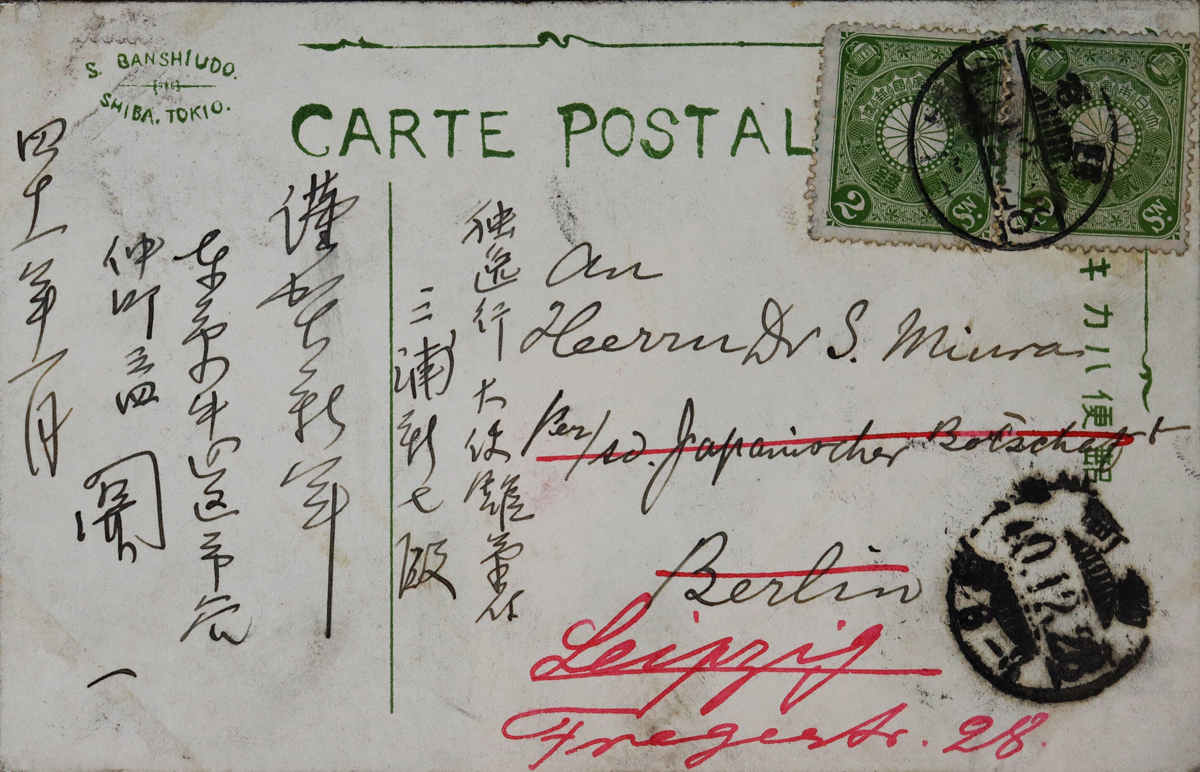 S. BANSHIUDO.
SHIBA. TOKIO.
CARTE POSTAL
郵便ハカキ
2 Sn.
Sn.
40.12.28
An
Herrn Dr S. Miura
Per/ad. Japanischer Botschaft
Berlin
Leipzig
Fregestr. 28.
独逸行 大使館気付
三浦新七殿
謹賀新年
東京牛込区市谷
仲町
関 一
四十一年一月